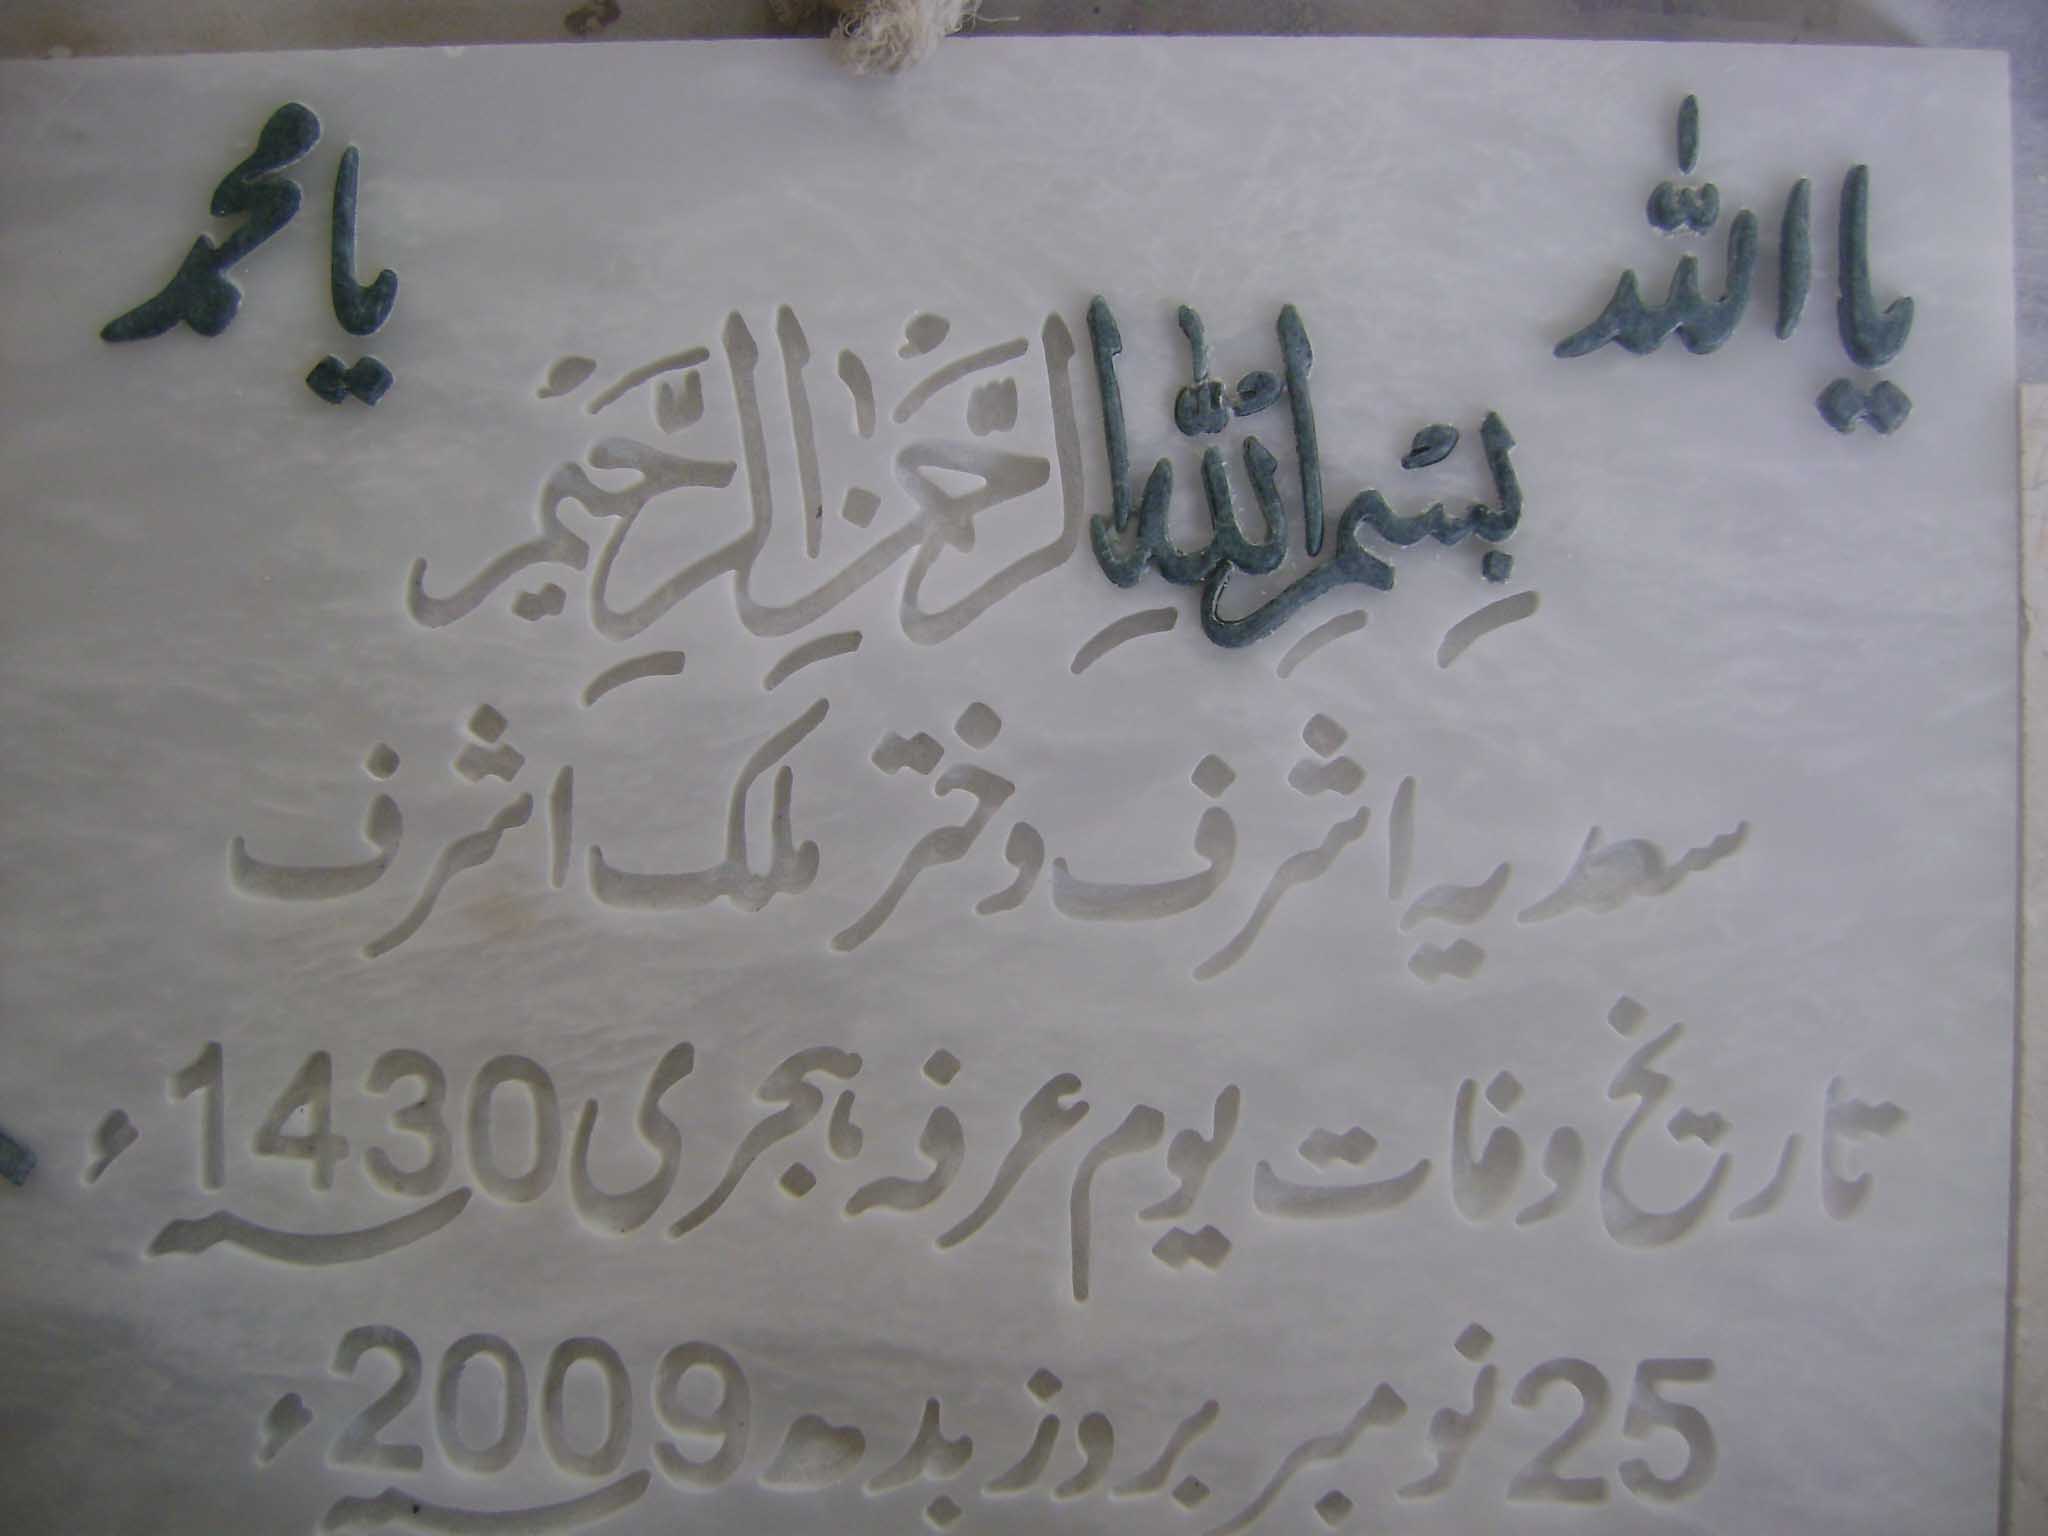 یا اللہ یا محمد
بِسْمِ اللّٰهِ الرَّحْمٰنِ الرَّحِيْمِ
سعدیہ اشرف دختر ملک اشرف
تاریخ وفات یوم عرفہ ہجری 1430ء
25 نومبر بروز بدھ 2009ء